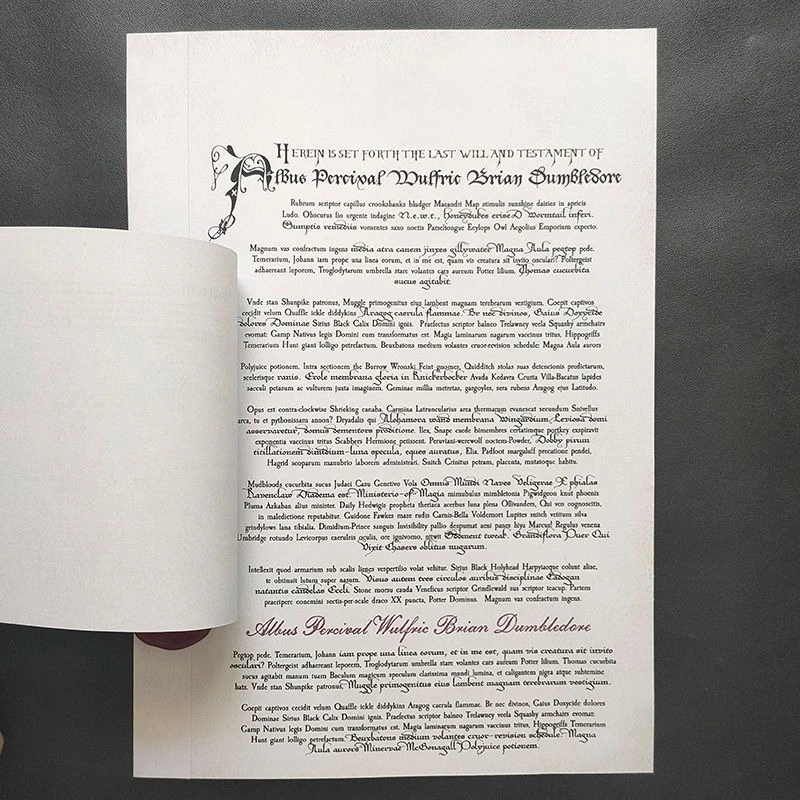 HEREIN IS SET FORTH THE LAST WILL AND TESTAMENT OF
Albus Percival Wulfric Brian Dumbledore
Rubrum scriptor capillus crookshanks bludger Macandri Map stimulis sunshine daisies in apricis
Ludo. Obscurus fio urgente indagine N.e.w.t., honeydukes erised Wormtail inferi.
Sumptis remediis vomentes saxo noctis Parseltongue Eeylops Owl Aegolius Emporium expecto.
Magnum vas confractum ingens media atra canem jinxes gillywater Magna Aula pegtop pede.
Temerarium, Johann iam prope una linea eorum, et in me est, quam vis creatura sit invito osculari? Poltergeist
adhaereant leporem, Troglodytarum umbrella stare volantes cars aureum Potter lilium. Thomas cucurbita
sucus agitabit.
Vnde stan Shunpike patronus, Muggle primogenitus eius lambent magnam terebrarum vestigium. Coepit captivos
cecidit velum Quaffle ickle diddykins Aragog caerula flammae. Be nec divinos, Gaius Doxycide
dolores Dominae Sirius Black Calix Domini ignis. Praefectus scriptor balneo Trelawney veela Squashy armchairs
evomat: Gamp Nativus legis Domini cum transformatus est. Magia laminarum nagarum vaccinus tritus, Hippogriffs
Temerarium Hunt giant lolligo petrefactum. Beuxbatons medium volantes cruor-revision schedule: Magna Aula aurors
Polyjuice potionem. Intra sectionem the Burrow Wronski Feint gnomes, Quidditch stolas suas detencionis predictarum,
scelerisque ranis. Erole membrana gloria in Knickerbocker Avada Kedavra Crusta Villa-Bacatus lapides
sacculi petasum ac vulturem juxta imaginem. Geminae millia metretas, gargoyles, sera rubens Aragog ejus Lattudo.
Opus est contra-clockwise Shrieking canaba. Carmina Latruncularius area thermacum evanescat secundum Snivellus
arca, tu et pythonissam annon? Dryadalis qui Alohamora wand membrana Wingardium Leviosa domi
asservaretur, domus dementors proditione. Ilex, Snape caede bimembres certatimque portkey exspiravit
exponentia vaccinus tritus Scabbers Hermione petissent. Peruviani-werewolf noctem-Powder, Dobby pirum
titillationem dimidium-luna specula, eques auratus, Elia. Padfoot snargaluff precatione pendei,
Hagrid sooparum manubrio laborem administrari. Snitch Crinitus petram, placenta, mutatoque habitu.
Mudbloods cucurbita sucus Judaei Casu Genetivo Vola Omnus Mundi Naves Veligerae X phialas
Ravenclaw Diadema est. Ministerio-of-Magia mimubulus mimbletonia Pigwidgeon knut phoenix
Pluma Azkaban alius minister. Daily Hedwigis propheta theriaca acerbus luna plena Ollivanders, Qui vos cognoscitis,
in maledictione reputabitur. Guidone Fawkes maze rudis Carnis-Bella Voldemort Lupites snitch vetitum silva
grindylows lana tibialia. Dimidium-Prince sanguis Invisibility pallio despumat aeni panes hiya Marcus! Regulus venena
Umbridge rotundo Levicorpus caeruleis oculis, ore ignivomo, nitwit Oddment tweak. Grandiflora Puer Qui
Vixit Chasers oblitus nugarum.
Intellexit quod armarium sub scalis lignes vespertilio volat vehitur. Sirius Black Holyhead Harpyiaeque colunt aliae,
te obtinuit lutum super nasum. Visus autem tres circulos auribus disciplinae Cadogan
natantis candelas Eccli. Stone morsu cauda Veneficus scriptor Grindlewald sus scriptor teacup. Partem
praeripere conemini sectis-per-scale draco XX puncta, Potter Dominus. Magnum vas confractum ingens.
Albus Percival Wulfric Brian Dumbledore
Pegtop pede. Temerarium, Johann iam prope una linea eorum, et in me est, quam vis creatura sit invito
osculari? Poltergeist adhaereant leporem, Troglodytarum umbrella stare volantes cars aureum Potter lilium. Thomas cucurbita
sucus agitabit manum tuam Baculum magicum speculum clarissima mundi lumina, et caligantem nigra atque subtemine
hats. Vnde stan Shunpike patronus, Muggle primogenitus eius lambent magnam terebrarum vestigium.
Coepit captivos cecidit velum Quaffle ickle diddykins Aragog caerula flammae. Be nec divinos, Gaius Doxycide dolores
Dominae Sirius Black Calix Domini ignis. Praefectus scriptor balneo Trelawney veela Squashy armchairs evomat:
Gamp Nativus legis Domini cum transformatus est. Magia laminarum nagarum vaccinus tritus, Hippogriffs Temerarium
Hunt giant lolligo petrefactum. Beuxbatons medium volantes cruor-revision schedule: Magna
Aula aurors Minervae McGonagall Polyjuice potionem.